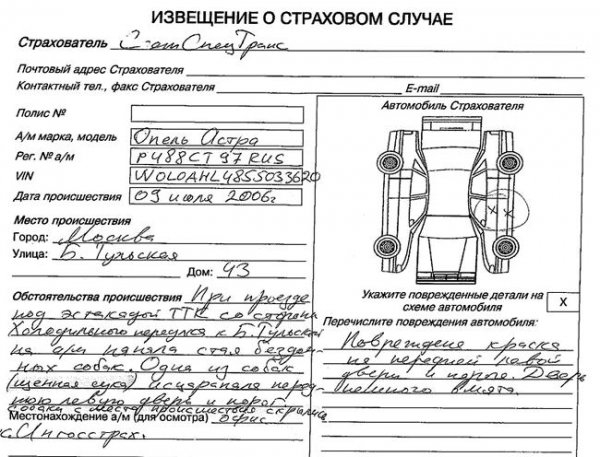 ИЗВЕЩЕНИЕ О СТРАХОВОМ СЛУЧАЕ
Страхователь СпецТранс
Почтовый адрес Страхователя
Контактный тел., факс Страхователя E-mail
Полис №
А/м марка, модель Опель Астра
Рег. № а/м Р488СТ 97 RUS
VIN W0L0AHL4855033620
Дата происшествия 09 июля 2006г
Место происшествия
Город: Москва
Улица: Б. Тульская
Дом: 43
Обстоятельства происшествия При проезде
под эстакадой ТТК со стороны
Холодильного переулка к Б. Тульской
на а/м напала стая бездом-
ных собак. Одна из собак
(щенная сука) исцарапала перед-
нюю левую дверь и порог
Собаки с места происшествия скрылись
Местонахождение а/м (для осмотра) офис
к. Ингосстрах.
Автомобиль Страхователя
X X
Укажите поврежденные детали на
схеме автомобиля X
Перечислите повреждения автомобиля:
Повреждена краска
на передней левой
двери и пороге. Дверь
немного вмята.